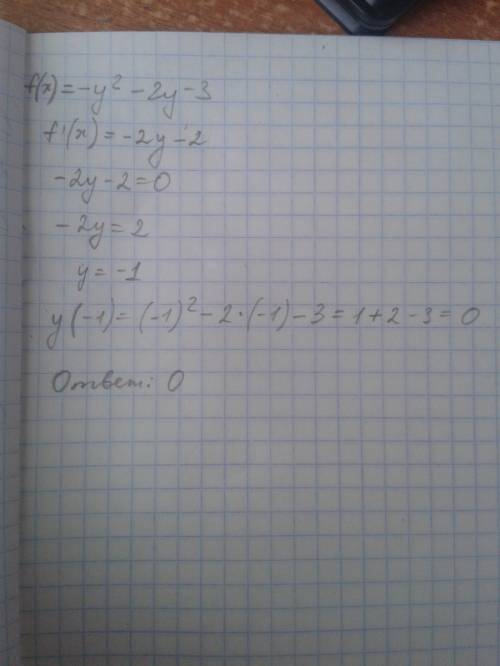 f(x) = -y² - 2y - 3
f'(x) = -2y - 2
-2y - 2 = 0
-2y = 2
y = -1
y(-1) = (-1)² - 2·(-1) - 3 = 1 + 2 - 3 = 0
Ответ: 0